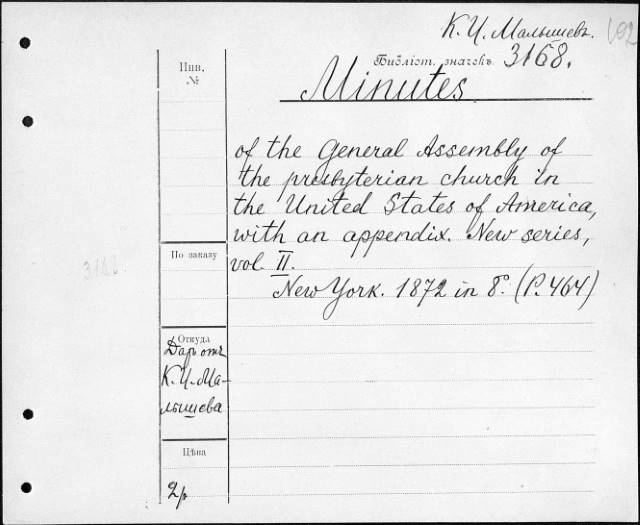 К. И. Малышевъ.
Библіот. значекъ 3168.
Инв.
№
Minutes
of the General Assembly of
the presbyterian church in
the United States of America,
with an appendix. New series,
vol. II.
New York. 1872 in 8°. (P. 464)
3168
По заказу
Откуда
Даръ отъ
К. И. Ма-
лышева
Цѣна
2 р